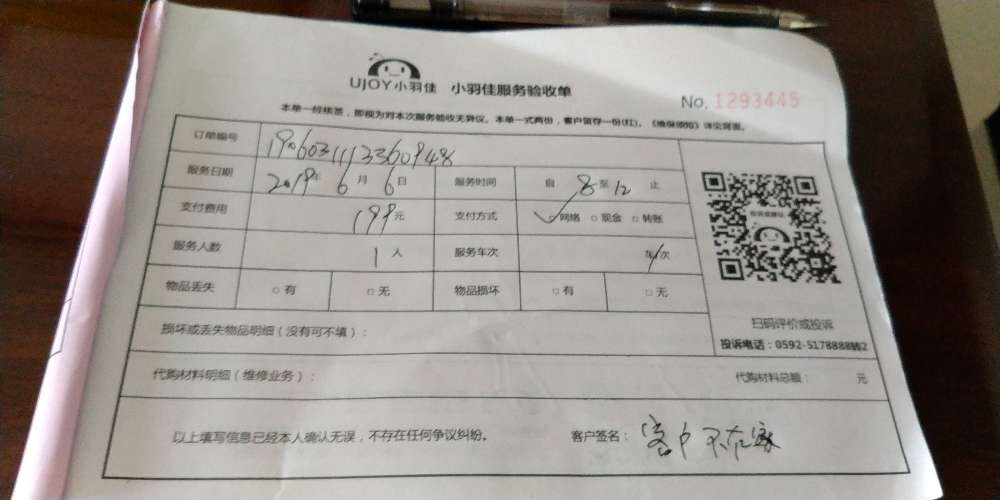 UJOY小羽佳 小羽佳服务验收单
No. 1293445
本单一经接签，即视为对本次服务验收无异议。本单一式两份，客户留存一份(红)。《维保须知》详见背面。
订单编号 1906031113360948
服务日期 2019年 6月 6日 服务时间 自 8 至 12 止
支付费用 199元 支付方式 ✓网络 □现金 □转账
服务人数 1人 服务车次 车/次
物品丢失 □有 □无 物品损坏 □有 □无
投诉或建议
扫码评价或投诉
投诉电话：0592-5178888转2
损坏或丢失物品明细（没有可不填）：
代购材料明细（维修业务）： 代购材料总额： 元
以上填写信息已经本人确认无误，不存在任何争议纠纷。 客户签名：客户不在家